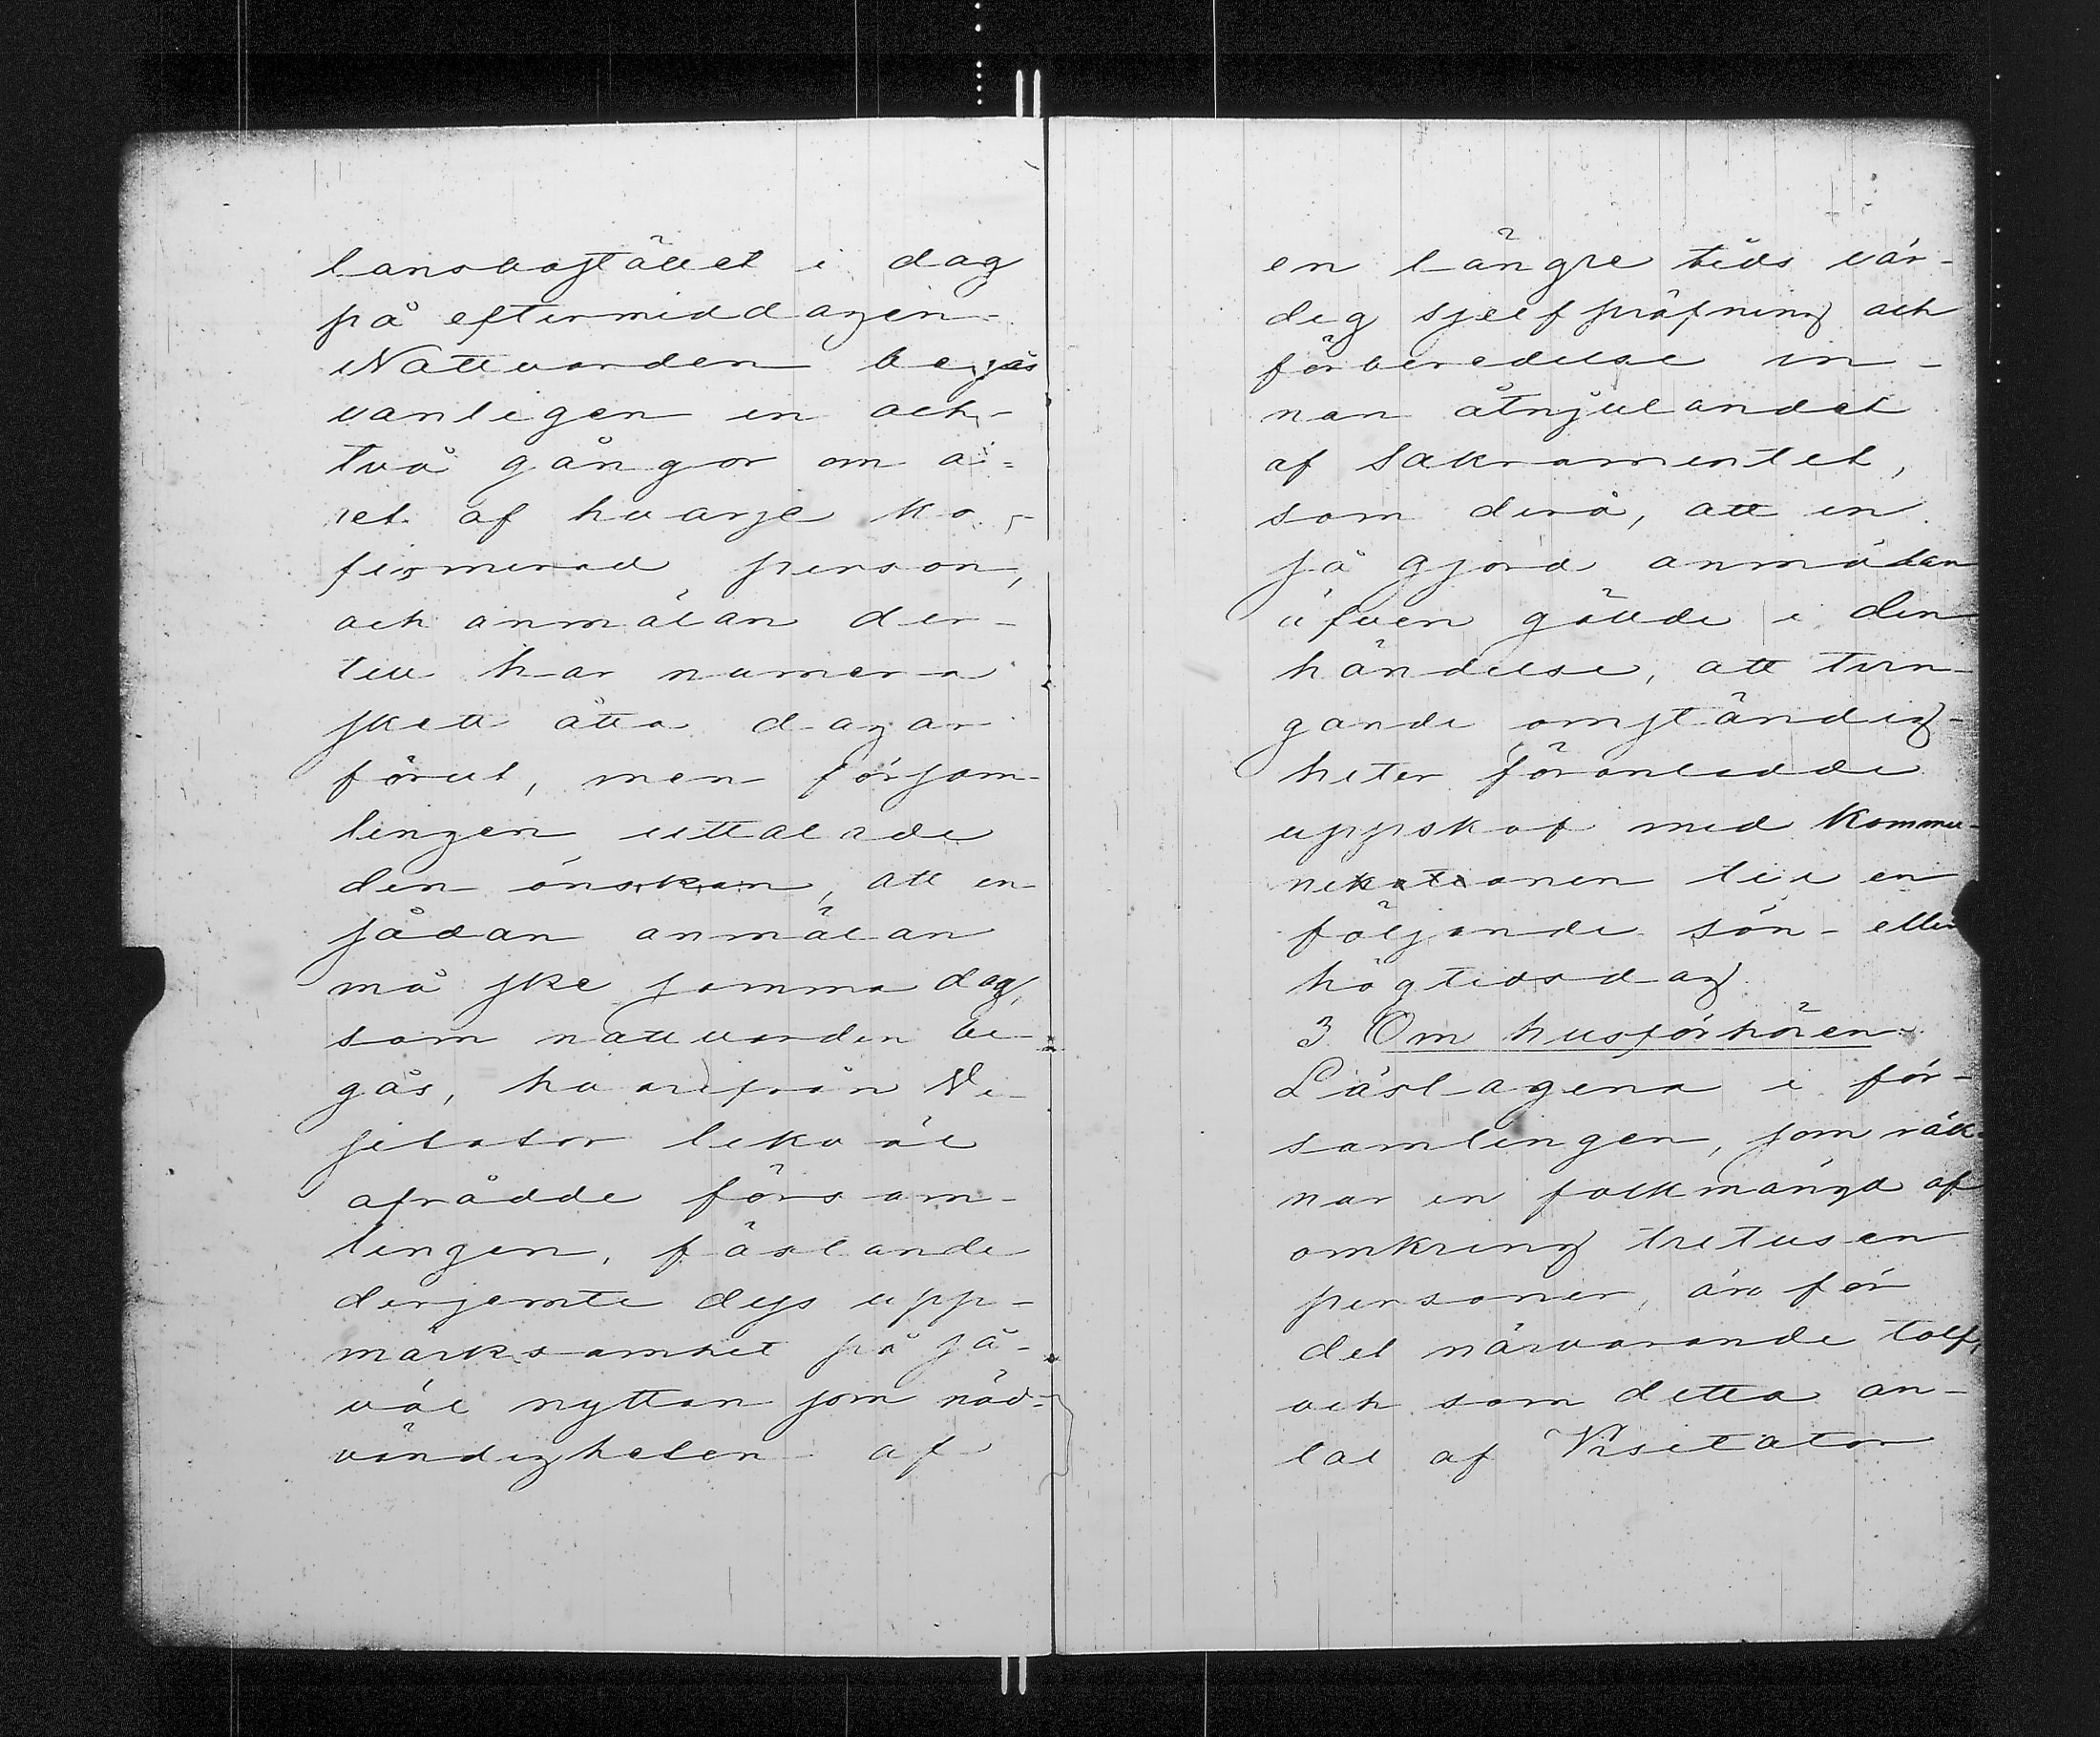 lansbostället i dag
på eftermiddagen.
Nattvarden begås
vanligen en och
två gånger om å-
ret af hvarje ko-
firmerad person,
och anmälan der-
till har numera
skett åtta dagar
förut, men försam-
lingen uttalade
den önskan, att en
sådan anmälan
må ske samma dag,
som nattvarden be-
gås, hvarifrån Vi-
sitator likväl
afrådde försam-
lingen, fästande
derjemte dess upp-
märksamhet på så-
väl nyttan som nöd-
vändigheten af
en längre tids vär-
dig sjelfpröfning och
förberedelse in-
nan åtnjutandet
af Sakramentet,
som derå, att en
så gjord anmälan
äfven gällde i den
händelse, att tvin-
gande omständig-
heter föranledde
uppskof med Kommu-
nikationen till en
följande sön- eller
högtidsdag.
3 Om husförhören.
Läslagena i för-
samlingen, som räk-
nar en folkmängd af
omkring tretusen
personer, äro för
det närvarande tolf,
och som detta an-
tal af Visitator